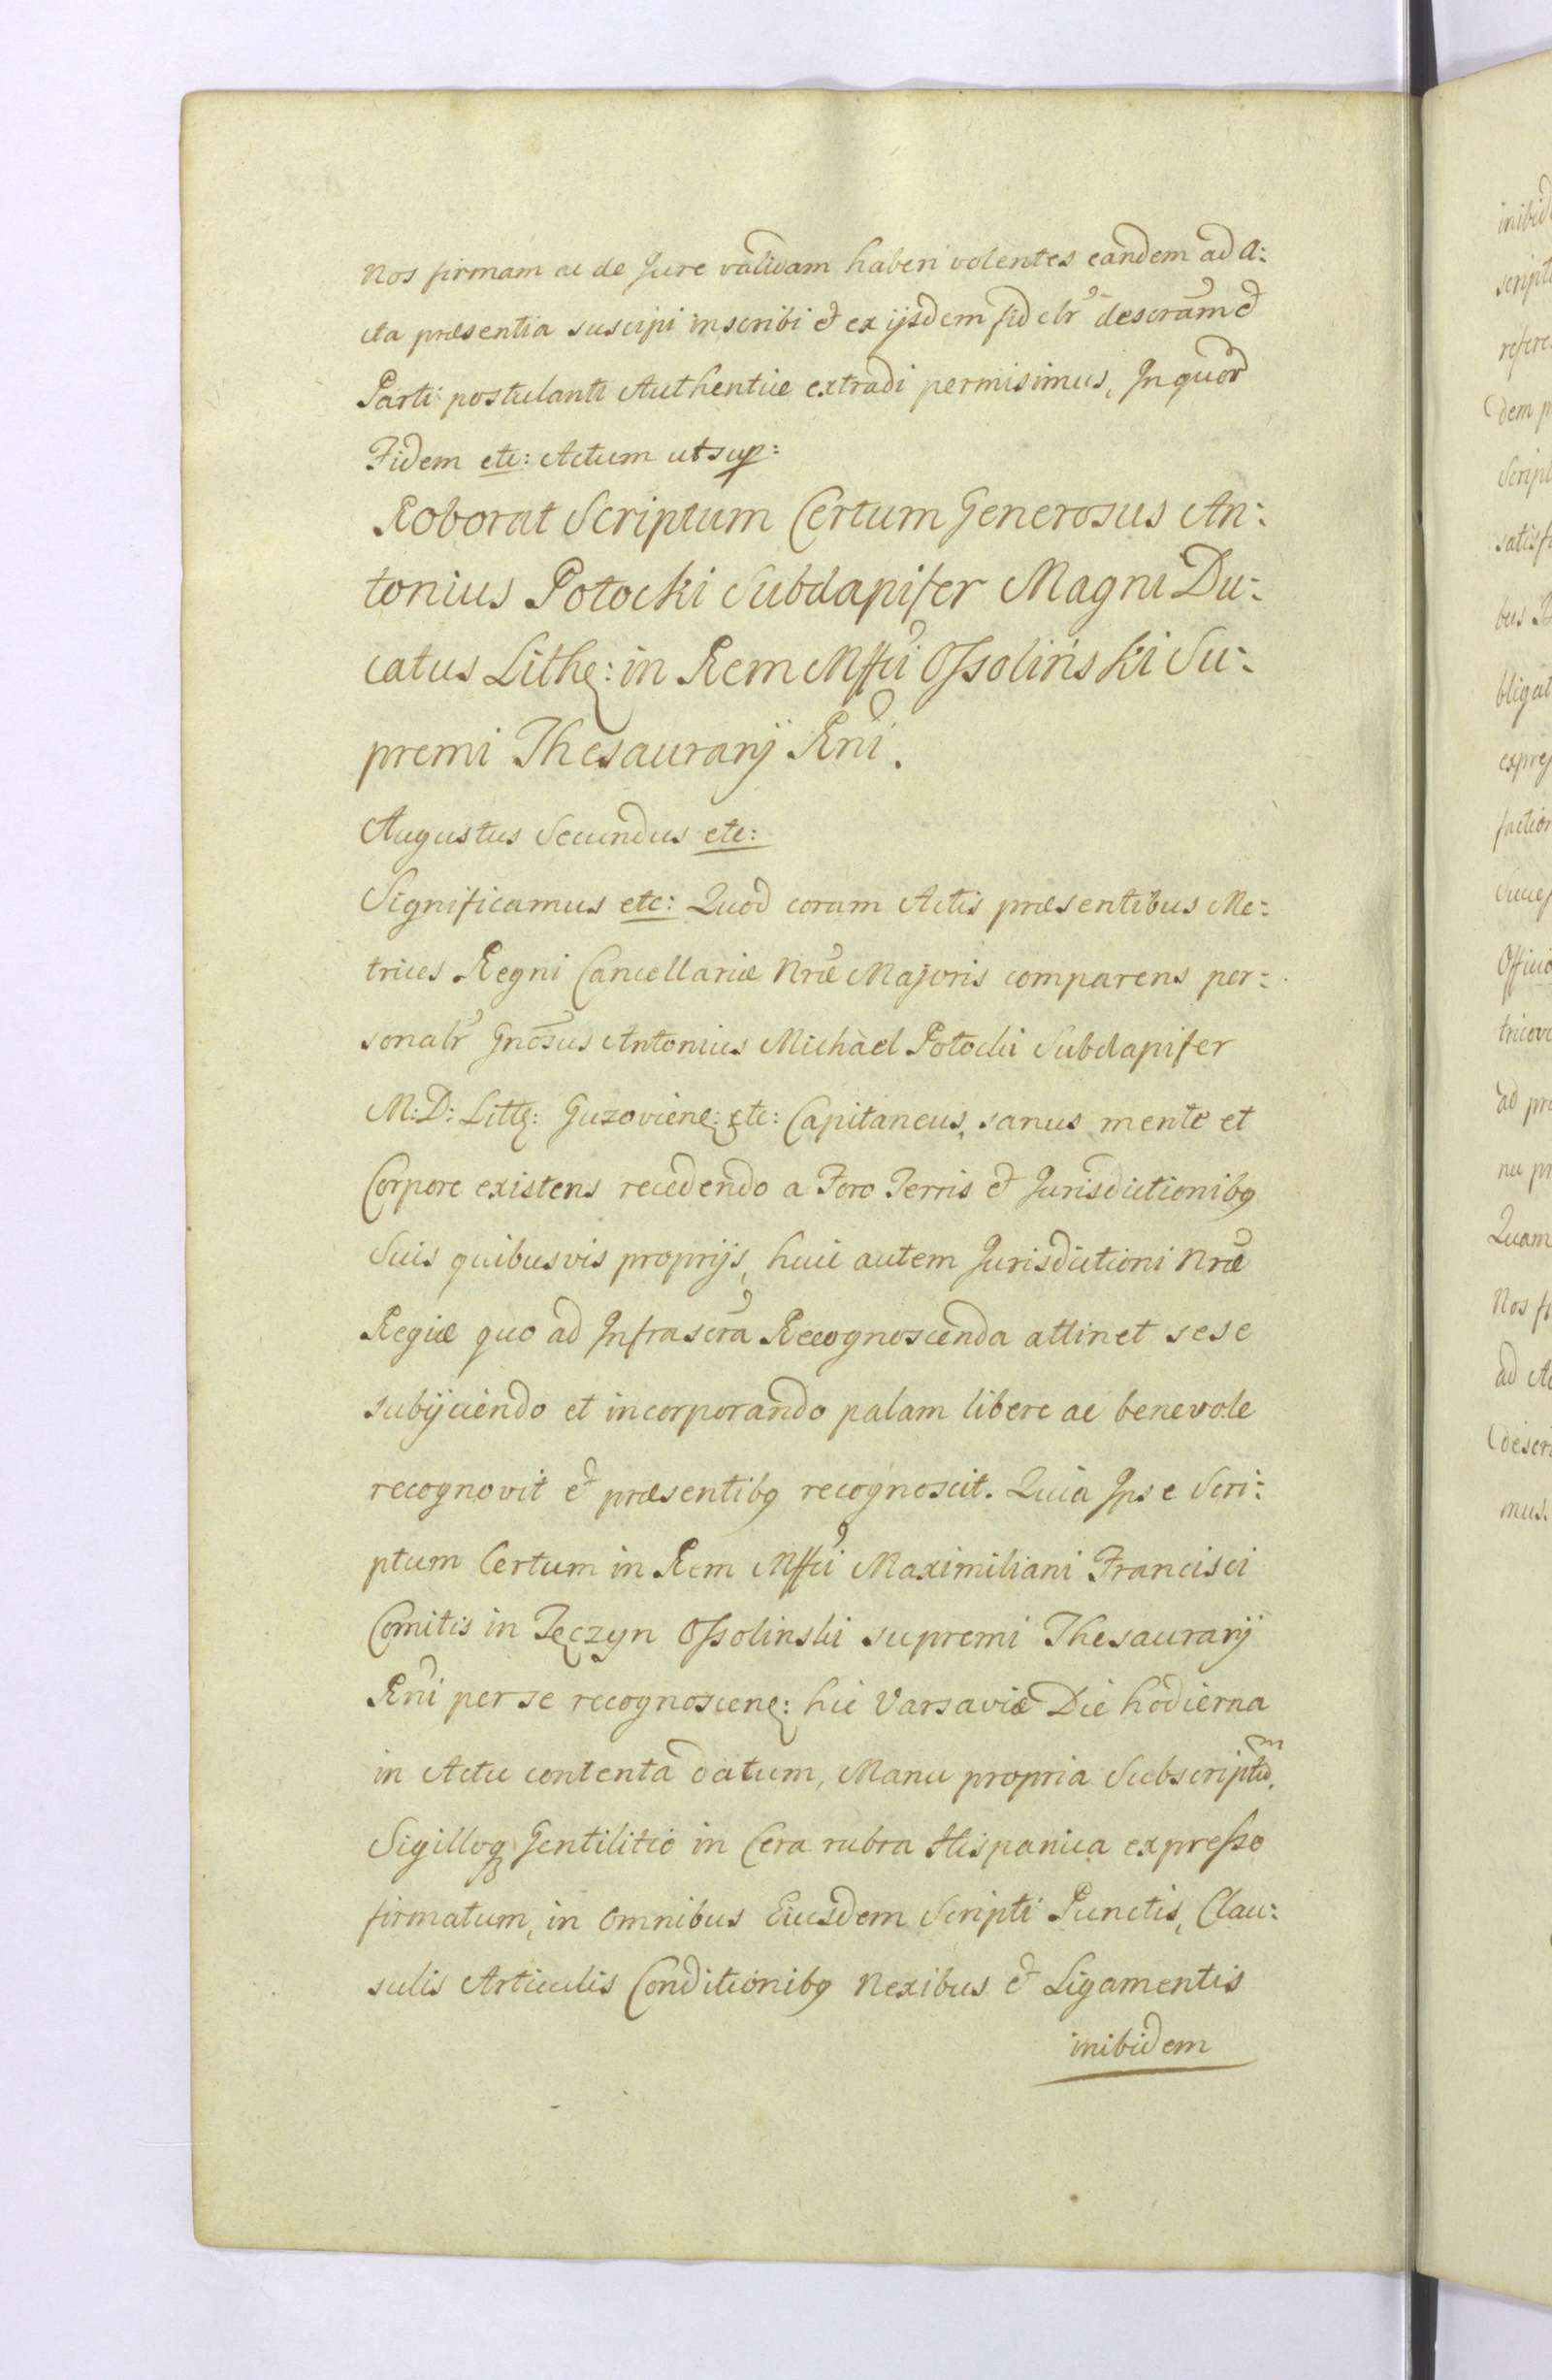 Nos firmam ac de Jure validam haberi volentes eandem ad A:
cta præsentia suscipi inscribi et ex ijsdem fidelr descram et
Parti postulanti Authentice extradi permisimus, In quor
Fidem etc: Actum ut sup:
Roborat Scriptum Certum Generosus An:
tonius Potocki Subdapifer Magni Du:
catus Lithę: in Rem Mffci Ossolinski Su:
premi Thesaurarij Rni.
Augustus Secundus etc:
Significamus etc: Quod coram Actis præsentibus Me:
trices Regni Cancellariæ Nræ Majoris comparens per:
sonalr Gnosus Antonius Michàel Potocki Subdapifer
M: D: Littę: Guzovienę: etc: Capitaneus, sanus mente et
Corpore existens recedendo a Foro Terris et Jurisdictionibq
Suis quibusvis proprijs, huic autem Jurisdictioni Nræ
Regiæ quo ad Infrascra Recognoscenda attinet sese
subijciendo et incorporando palam libere ac benevole
recognovit et præsentibq recognoscit. Quia Ipse Scri:
ptum Certum in Rem Mffci Maximiliani Francisci
Comitis in Tęczyn Ossolinski supremi Thesaurarij
Rni per se recognoscenę: hic Varsaviæ Die hodierna
in Actu contenta datum, Manu propria Subscriptum,
Sigilloq Gentilitio in Cera rubra Hispanica expresso
firmatum, in Omnibus Eiusdem Scripti Punctis, Clau:
sulis Articulis Conditionibq Nexibus et Ligamentis
inibidem